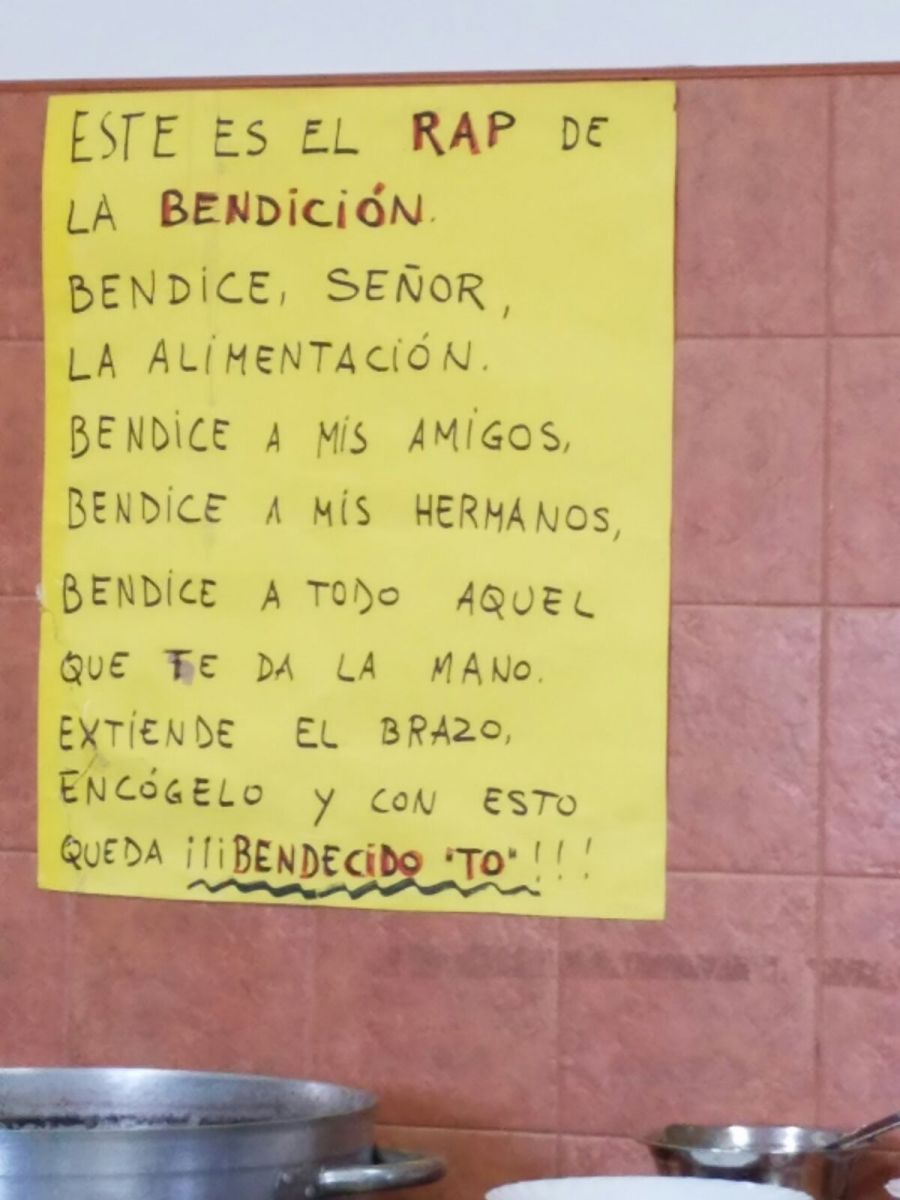 ESTE ES EL RAP DE
LA BENDICIÓN.
BENDICE, SEÑOR,
LA ALIMENTACIÓN.
BENDICE A MIS AMIGOS,
BENDICE A MIS HERMANOS,
BENDICE A TODO AQUEL
QUE TE DA LA MANO.
EXTIENDE EL BRAZO,
ENCÓGELO Y CON ESTO
QUEDA ¡¡¡BENDECIDO "TO"!!!